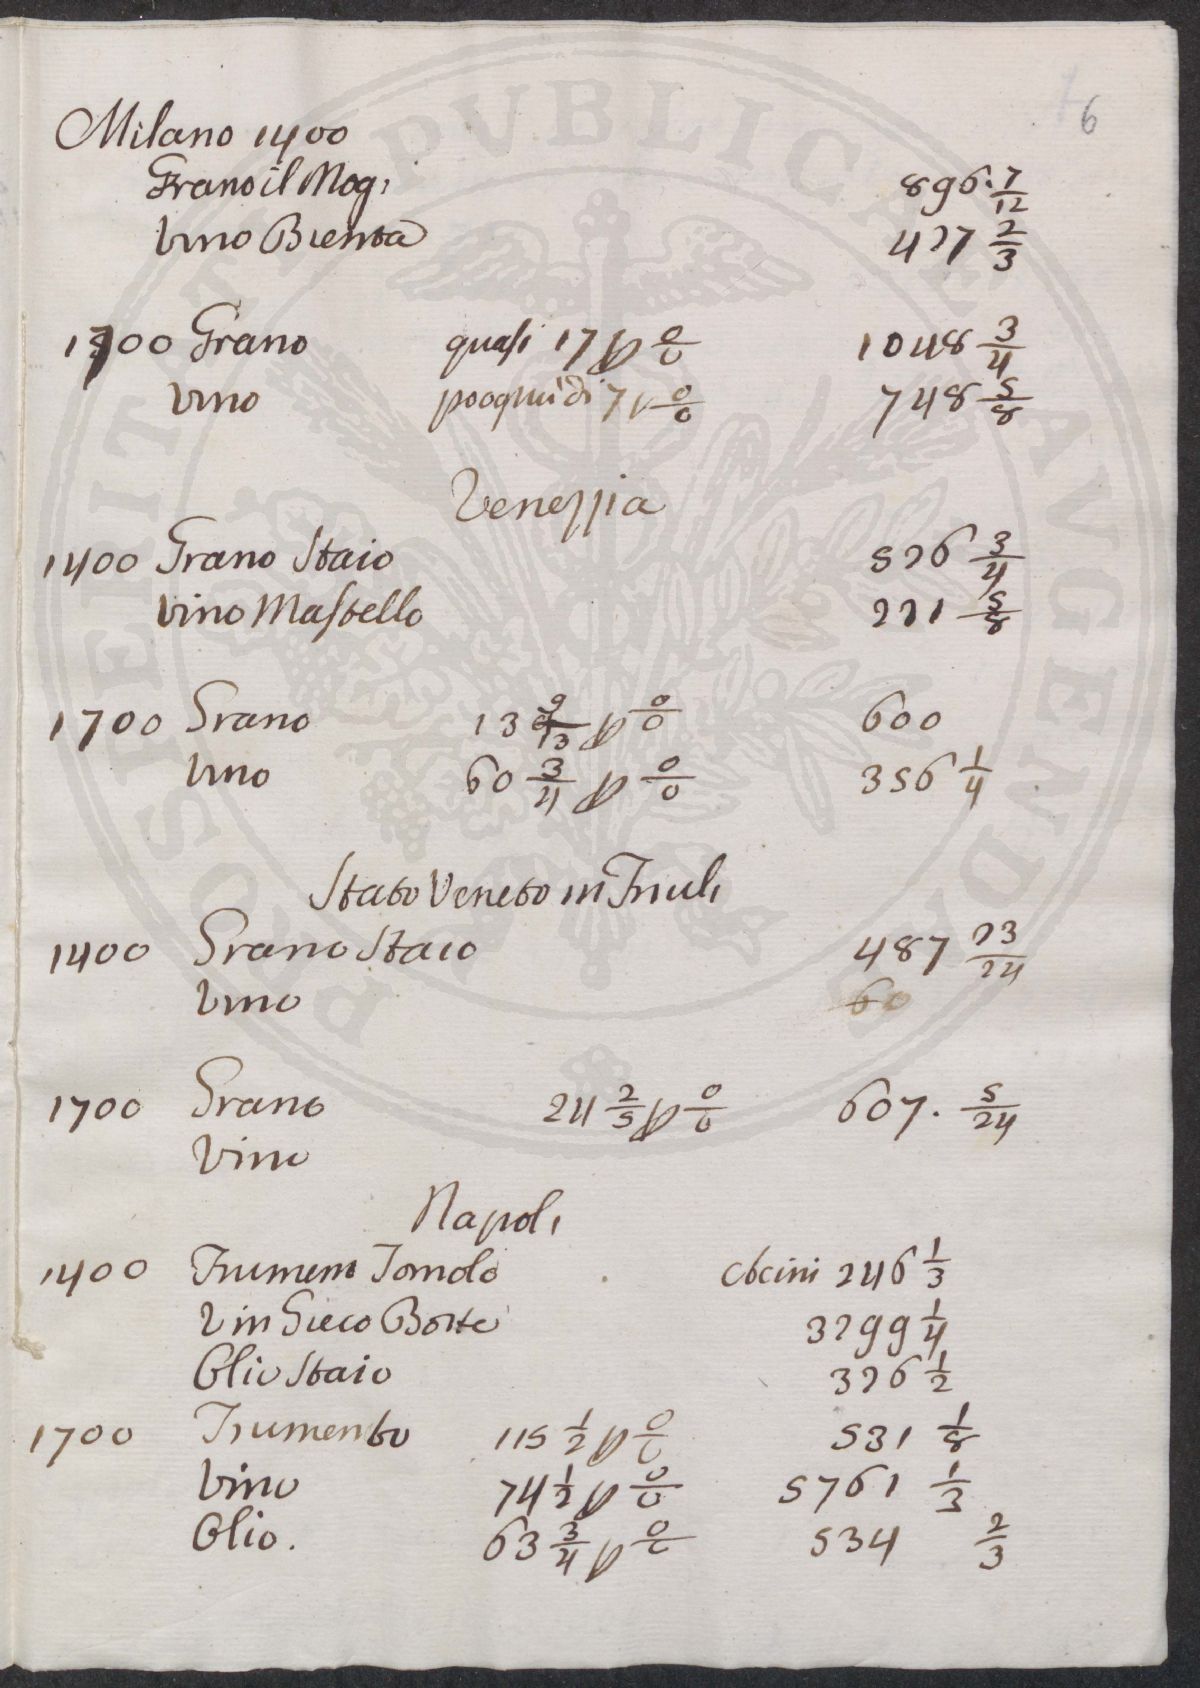 6
Milano 1400
Grano il Mog: 896. 7/12
Vino Brenta 427 2/3
1700 Grano quasi 17 p 0/0 1048 3/4
Vino poco più di 7 p 0/0 748 5/8
Venezzia
1400 Grano Staio 526 3/4
Vino Mastello 221 5/8
1700 Grano 13 9/13 p 0/0 600
Vino 60 3/4 p 0/0 356 1/4
Stato Veneto in Friuli
1400 Grano Staio 487 23/24
Vino 60
1700 Grano 24 2/5 p 0/0 607. 5/24
Vino
Napoli
1400 Frumento Tomolo 246 1/3
Vin Greco Botte 3299 1/4
Olio Staio 326 1/2
1700 Frumento 115 1/2 p 0/0 531 1/8
Vino 74 1/2 p 0/0 5761 1/3
Olio. 63 3/4 p 0/0 534 2/3